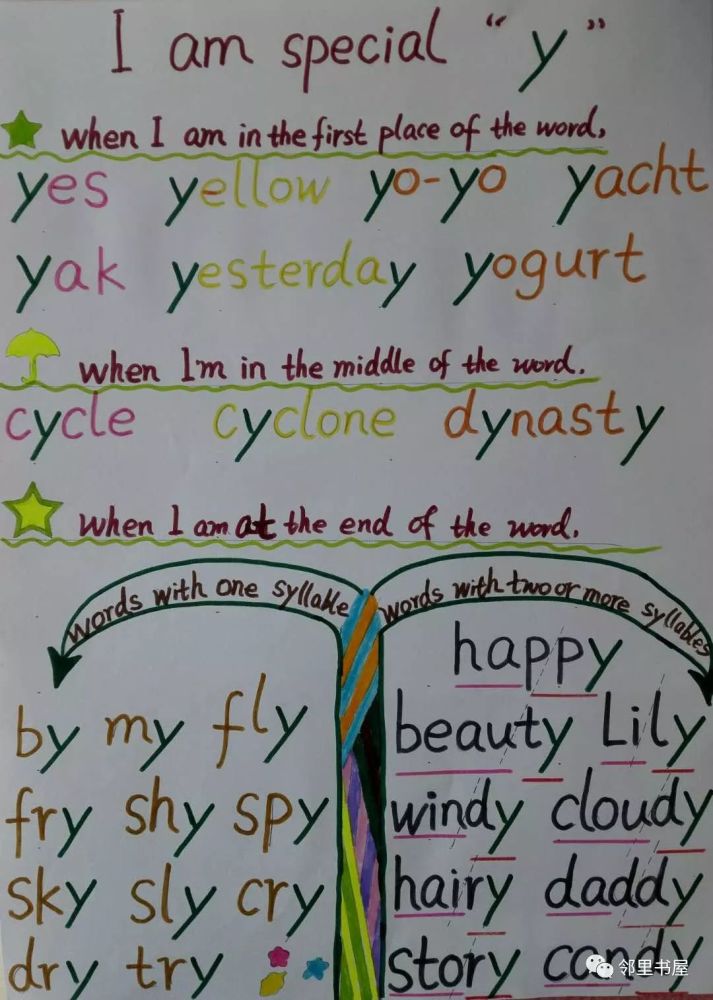 I am special "y"
when I am in the first place of the word,
yes yellow yo-yo yacht
yak yesterday yogurt
when I'm in the middle of the word.
cycle cyclone dynasty
when I am at the end of the word.
words with one syllable
by my fly
fry shy spy
sky sly cry
dry try
words with two or more syllables
happy
beauty Lily
windy cloudy
hairy daddy
story candy
邻里书屋